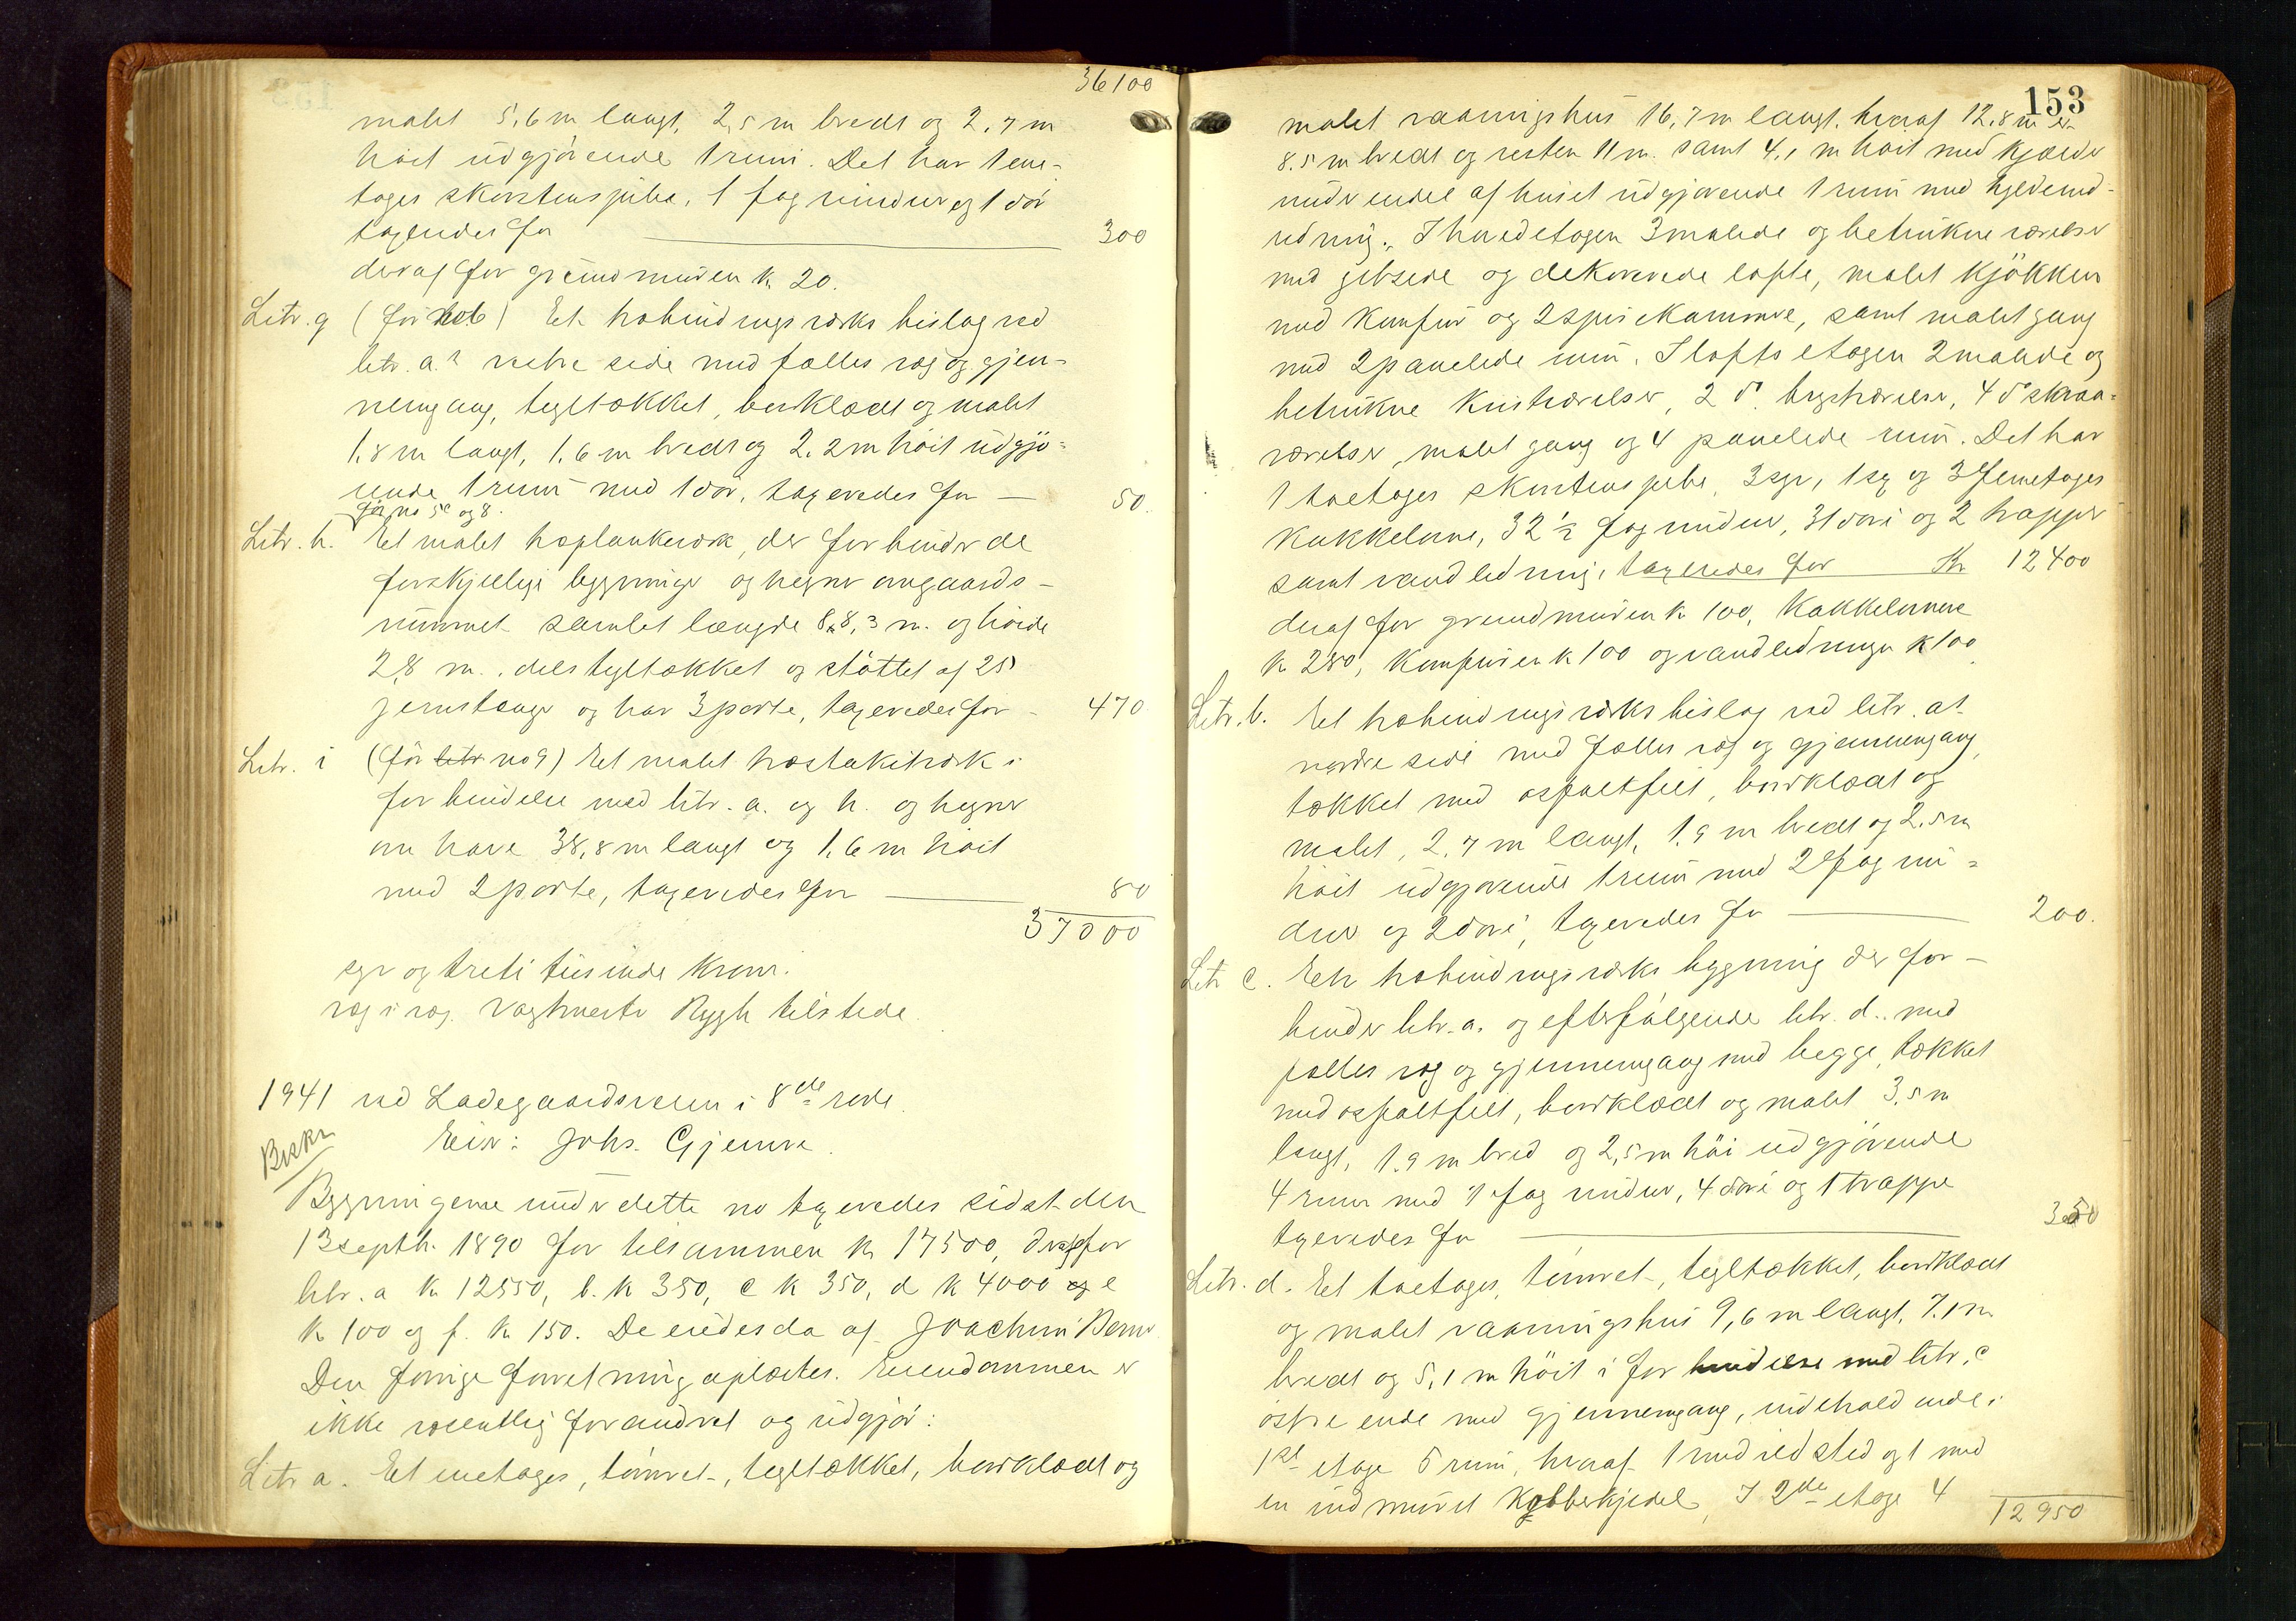 36100
malet 5,6 m langt, 2,5 m bredt og 2,7 m
höit udgjörende 1 rum. Det har 1 ene-
tages skorstenspibe, 1 fag vinduer og 1 dör
taxeredes for 300
deraf for grundmuren k 20.
Litr. g (för no 6) Et trebindingsværks bislag ved
litr. a.s vestre side med fælles væg og gjen-
nemgang, tegltækket, bordklædt og malet
1,8 m langt, 1,6 m bredt og 2,2 m höit udgjö-
rende 1 rum med 1 dör, taxeredes for 50
för no 5c og 8.
Litr. h. Et malet træplankeværk, der forbinder de
forskjellige bygninger og hegner om gaards-
rummet samlet længde 88,3 m. og höide
2,8 m., dels tegltækket og stöttet af 25
jernstænger og har 3 porte, taxeredes for 470
Litr. i (för litr no 9) Et malet træstakitværk i
forbindelse med litr. a. og h. og hegner
om have 38,8 m langt og 1,6 m höit
med 2 porte, taxeredes for 80
37000
syv og treti tusinde kroner.
Vagtmester Rygh tilstede.
1941 ved Ladegaardsveien i 8de rode.
Beskr
Eier: Johs. Gjemre.
Bygningerne under dette no taxeredes sidst den
13 septbr. 1890 for tilsammen k 17500, deraf for
litr. a k 12550, b. k 350, c k 350, d k 4000 og e
k 100 og f. k 150. De eiedes da af Joachim Berner
Den forrige forretning oplæstes. Eiendommen er
ikke væsentlig forandret og udgjör:
Litr a. Et enetages, tömret, tegltækket, bordklædt og
153
malet vaaningshus 16,7 m langt, hvoraf 12,8 m er
8,5 m bredt og resten 11 m. samt 4,1 m höit med kjælder
under endel af huset udgjörende 1 rum med kjelderned-
redning. I hovedetagen 3 malede og betrukne værelser
med gibsede og dekorerede lofte, malet kjökken
med komfur og 2 spisekammere, samt malet gang
med 2 panelede rum. I loftsetagen 2 malede og
betrukne kvistværelser, 2 do. brystværelser, 4 do skraa-
værelser, malet gang og 4 panelede rum. Det har
1 toetages skorstenspibe, 3 syv, 1 sex og 3 femetages
kakkelovne, 32 ½ fag vinduer, 31 döre og 2 trapper
samt vandledning, taxeredes for Kr 12400
deraf for grundmuren k 100, kakkelovnene
k 280, komfuren k 100 og vandledningen k 100
Litr. b. Et trebindingsværks bislag ved litr. a's
nordre side med fælles væg og gjennemgang,
tækket med asfaltfilt, bordklædt og
malet, 2,7 m langt, 1,9 m bredt og 2,5 m
höit udgjörende 1 rum med 2 fag vin-
duer og 2 döre, taxeredes for 200.
Litr c. En trebindingsværks bygning der for-
binder litr. a. og efterfölgende litr. d. med
fælles væg og gjennemgang med begge, tækket
med asfaltfilt, bordklædt og malet 3,5 m
langt, 1,9 m bred og 2,5 m höi udgjörende
4 rum med 1 fag vinduer, 4 döre og 1 trappe
taxeredes for 350
Litr. d. Et toetages, tömret, tegltækket, bordklædt
og malet vaaningshus 9,6 m langt, 7,1 m
bredt og 5,1 m höit i forbindelse med litr. c
östre ende med gjennemgang, indeholdende i
1ste etage 5 rum, hvoraf 1 med ildsted og 1 med
en indmuret kobberkjedel, I 2den etage 4
12950